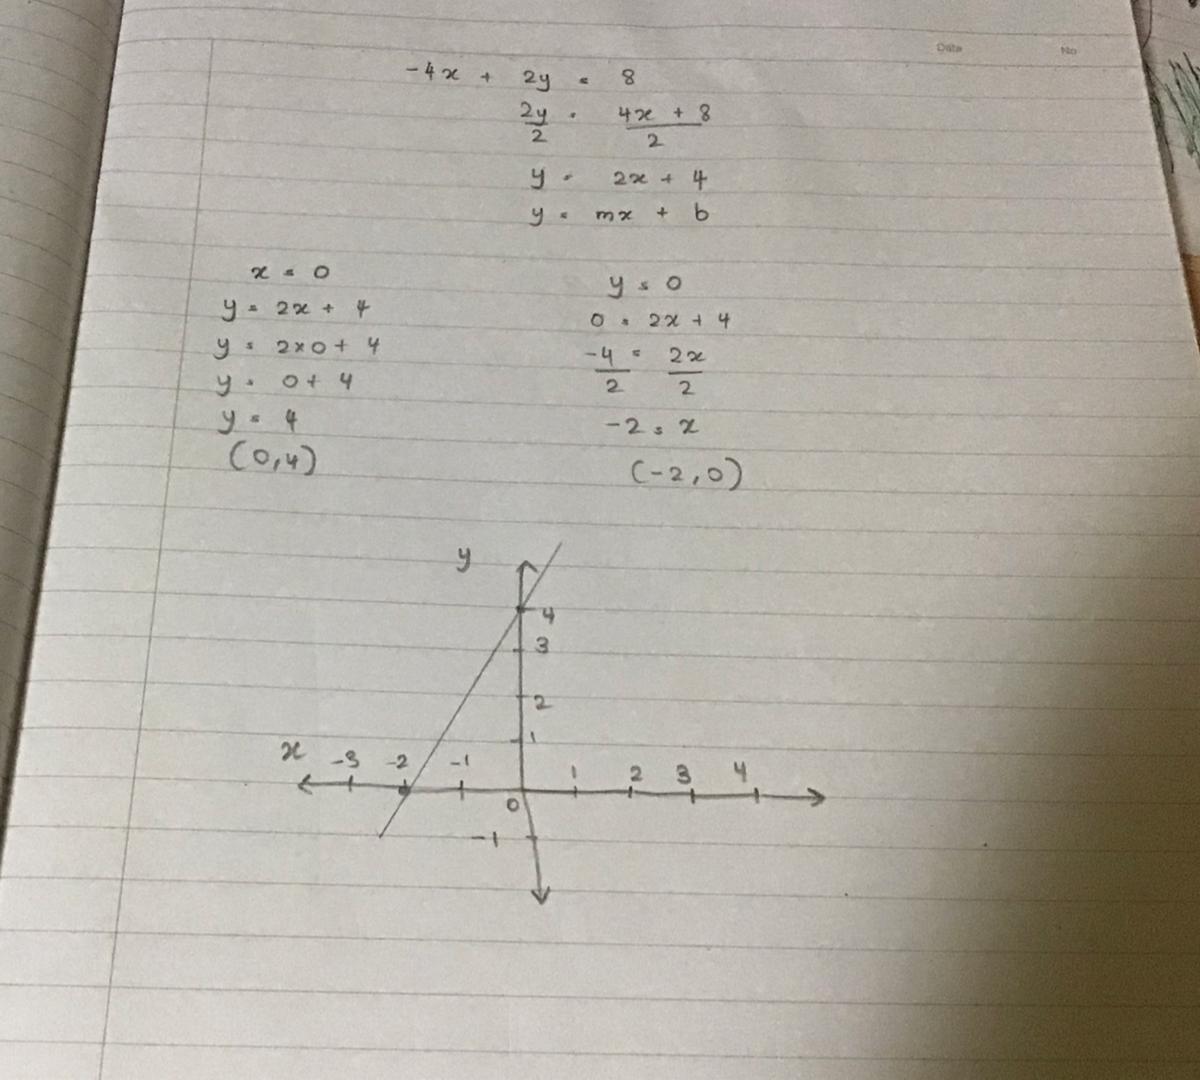 Date No
-4x + 2y = 8
2y/2 = 4x + 8/2
y = 2x + 4
y = mx + b
x = 0
y = 2x + 4
y = 2x0 + 4
y = 0 + 4
y = 4
(0,4)
y = 0
0 = 2x + 4
-4/2 = 2x/2
-2 = x
(-2,0)
y
4
3
2
1
x -3 -2 -1 1 2 3 4
0
-1